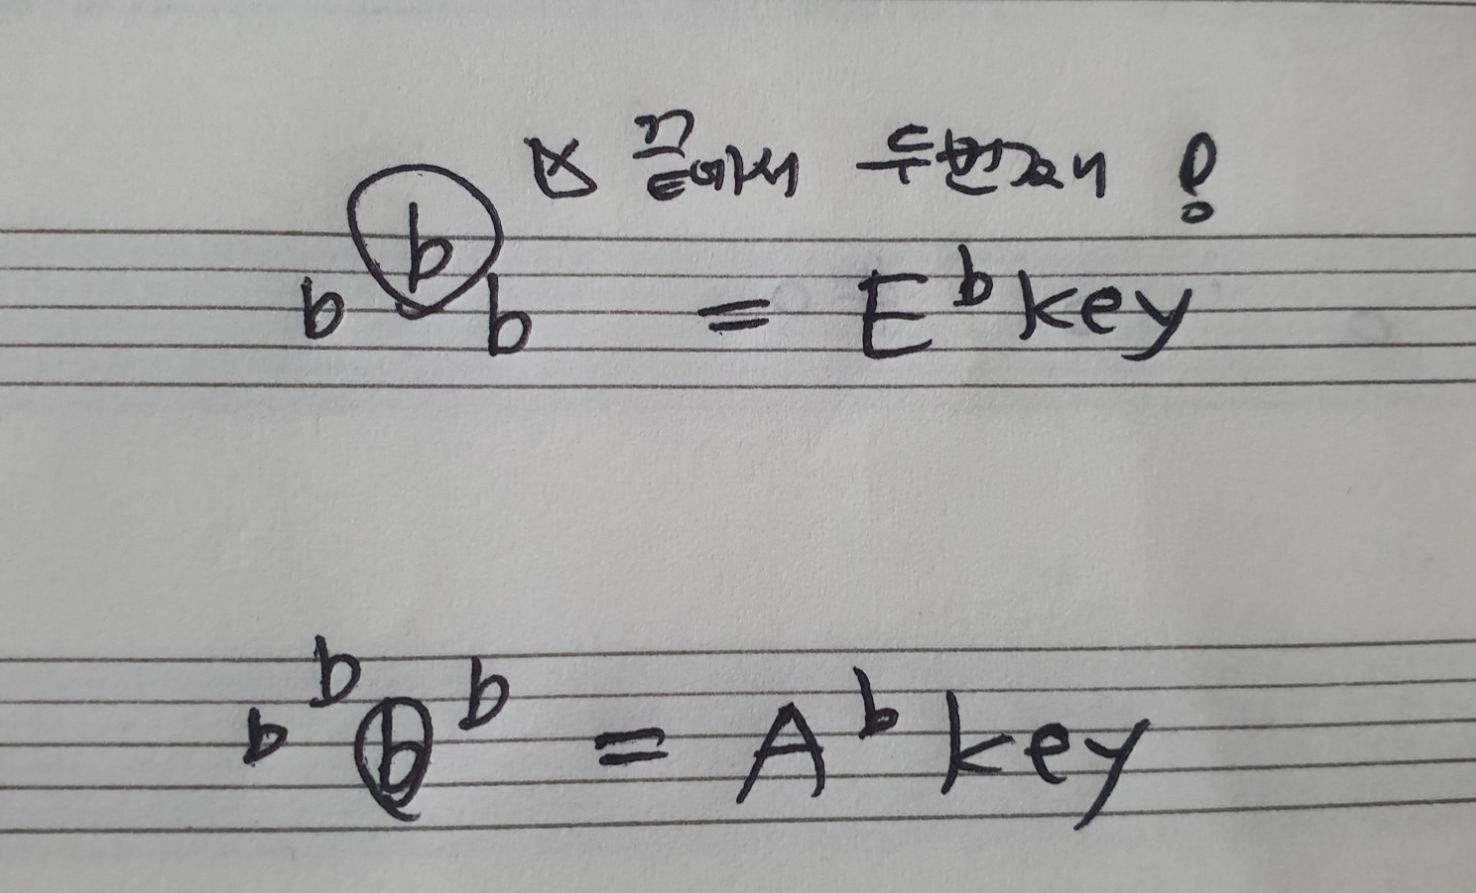 ※ 끝에서 두번째!
b b b = E b key
b b b b = A b key